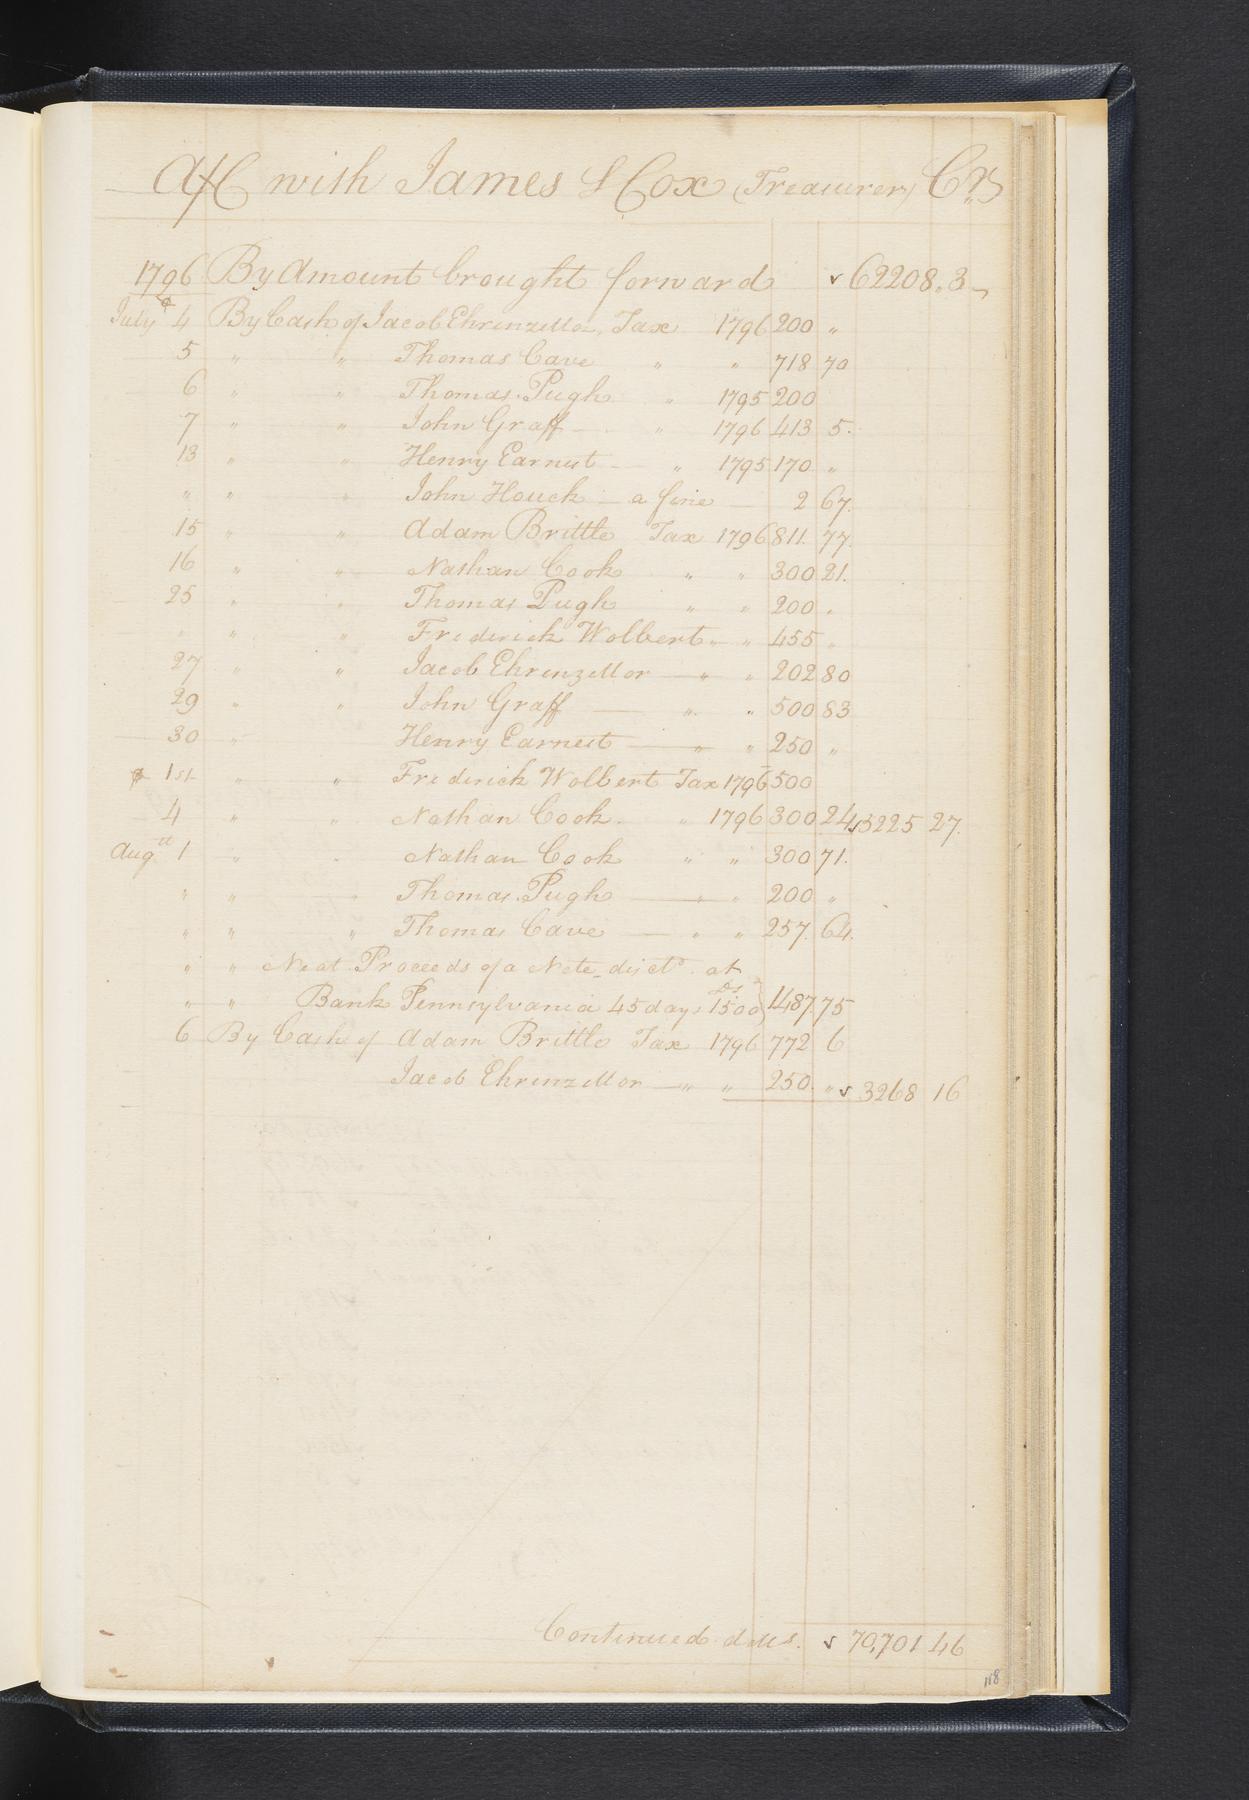 A/C with James S Cox (Treasurer) Crs
1796 By Amount brought forward 62208.3
July 4 By Cash of Jacob Ehrenzellor, Tax 1796 200 "
5 " " Thomas Cave " " 718 70
6 " " Thomas Pugh " 1795 200
7 " " John Graff " 1796 413 5.
13 " " Henry Earnest " 1795 170 "
" " " John Houck a fine 2 67.
15 " " Adam Brittle Tax 1796 811. 77.
16 " " Nathan Cook " " 300 21.
25 " " Thomas Pugh " " 200 "
" " " Frederick Wolbert " " 455 "
27 " " Jacob Ehrenzellor " " 202 80
29 " " John Graff " " 500 83
30 " Henry Earnest " " 250 "
1st " " Frederick Wolbert Tax 1796 500
4 " " Nathan Cook " 1796 300 24 5225 27.
Augst 1 " " Nathan Cook " " 300 71.
" " " Thomas Pugh " " 200 "
" " " Thomas Cave " " 257. 64.
" " Neat Proceeds of a Note disctd. at
" " Bank Pennsylvania 45 days Ds 1500 } 1487. 75
6 By Cash of Adam Brittle Tax 1796 772 6
Jacob Ehrenzellor " " 250 " 3268 16
Continued dolls. 70,701 46
118